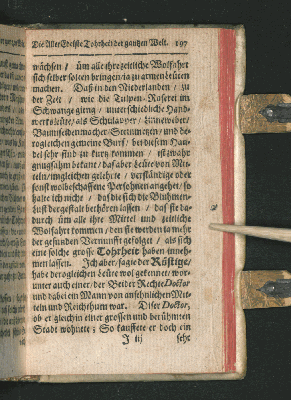 Die Aller Edelste Tohrheit der gantzen Welt. 197
wüchsen / üm alle ihre zeitliche Wolfahrt
sich selber solten bringen ja zu armen leüten
machen. Daß in den Niederlanden / zu
der Zeit / wie die Tulpen-Raserei im
Schwange ging / unterschiedliche Hand-
werksleüte / als Schulapper / Linneweber /
Baumseidenmacher / Steinmetzen / und de-
rogleichen gemeine Bursche / bei diesem Han-
del sehr sind zu kurtz kommen / ist zwahr
gnugsahm bekant / daß aber Leüte von Mit-
teln / imgleichen gelehrte / verständige oder
sonst wolbeschaffene Persohnen angehet / so
halte ich nicht / daß die sich die Bluhmen-
lust dergestalt bethören lassen / daß sie da-
durch üm alle ihre Mittel und zeitliche
Wolfahrt kommen / den sie werden ja mehr
der gesunden Vernunfft gefolget / als sich
eine solche grosse Tohrheit haben inneh-
men lassen. Ich aber / sagte der Rüstige /
habe derogleichen Leüte wol gekennet / wor-
unter auch einer / der Beider Rechte Doctor
und dabei ein Mann von ansehnlichen Mit-
teln und Reichthum war. Diser Doctor,
ob er gleich in einer grossen und berühmten
Stadt wohnete; So kauffete er doch ein
J iij sehr